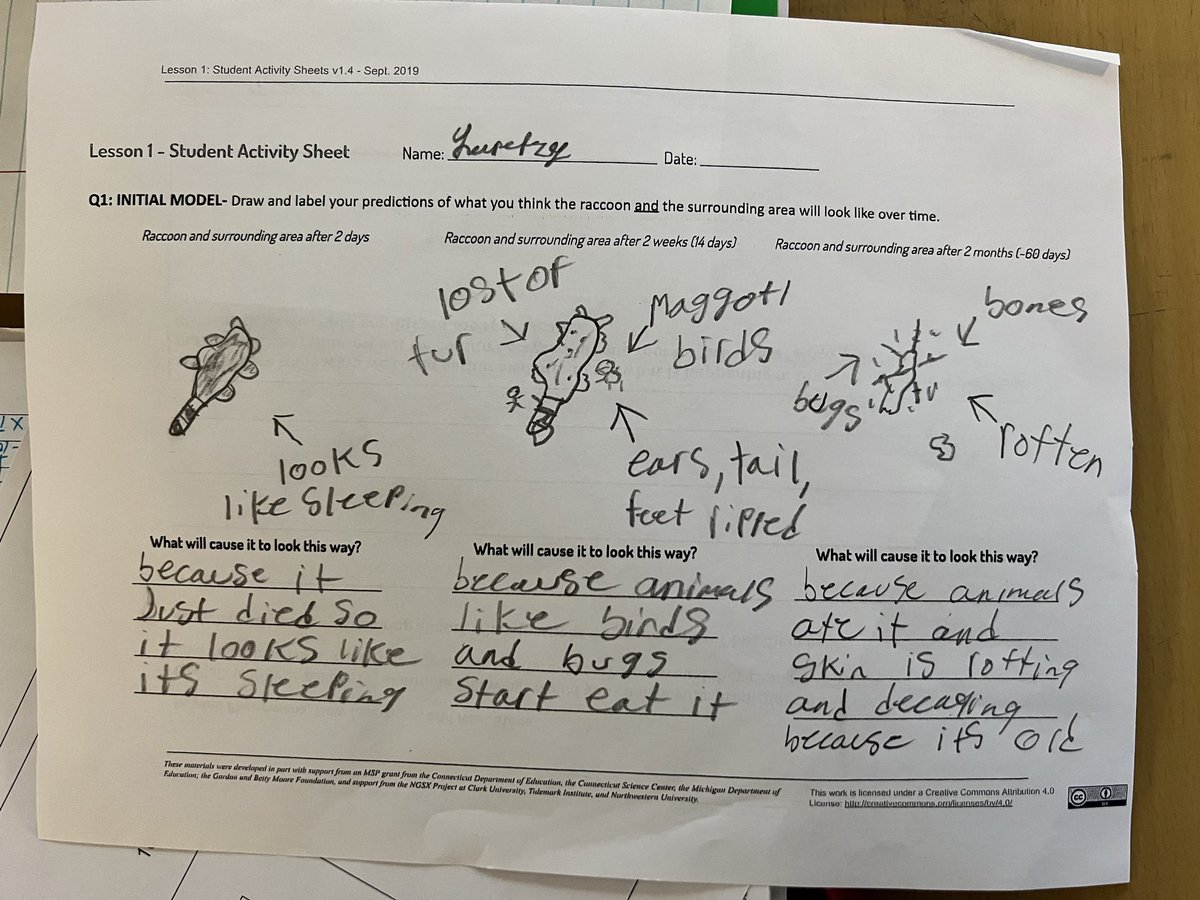 Lesson 1: Student Activity Sheets v1.4 - Sept. 2019
Lesson 1 – Student Activity Sheet Name: Date:
Q1: INITIAL MODEL- Draw and label your predictions of what you think the raccoon and the surrounding area will look like over time.
Raccoon and surrounding area after 2 days
Raccoon and surrounding area after 2 weeks (14 days)
Raccoon and surrounding area after 2 months (~60 days)
looks
like sleeping
lost of
fur
Maggots
birds
ears, tail,
feet ripped
bones
bugs
rotten
What will cause it to look this way?
because it
Just died so
it looks like
its sleeping
What will cause it to look this way?
because animals
like birds
and bugs
Start eat it
What will cause it to look this way?
because animals
ate it and
skin is rotting
and decaying
because its old
These materials were developed in part with support from an MSP grant from the Connecticut Department of Education, the Connecticut Science Center, the Michigan Department of
Education; the Gordon and Betty Moore Foundation, and support from the NGSX Project at Clark University, Tidemark Institute, and Northwestern University.
This work is licensed under a Creative Commons Attribution 4.0
License: http://creativecommons.org/licenses/by/4.0/
cc
BY